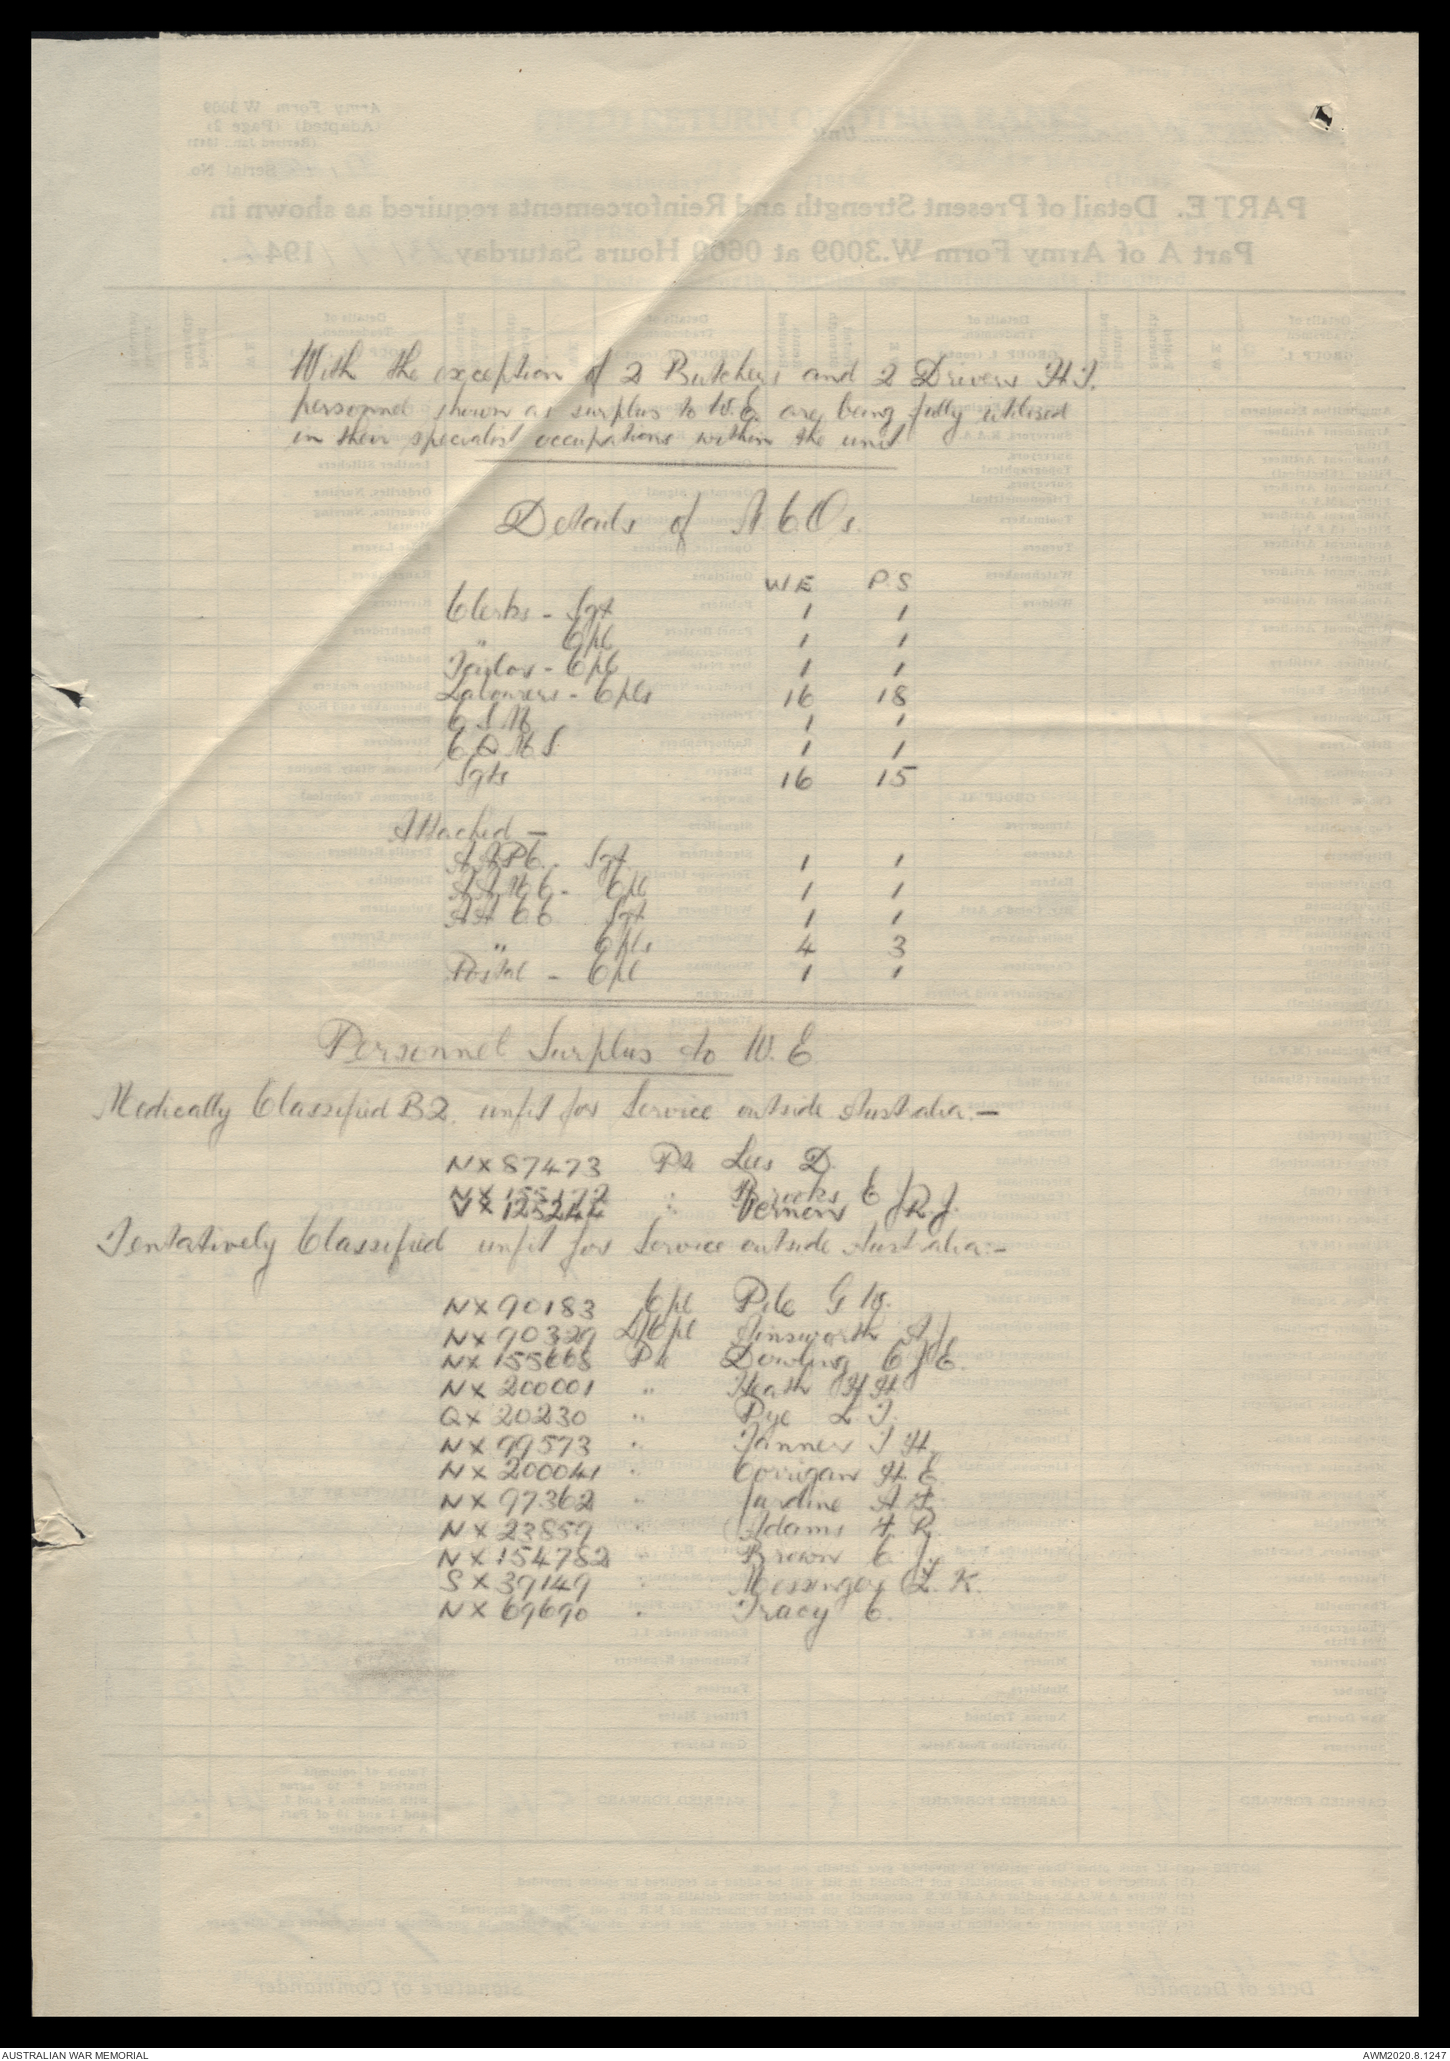 With the exception of 2 Butchers and 2 Drivers H.T.
personnel shown as surplus to W.E. are being fully utilised
in their specialist occupations within the unit
Details of N.C.Os.
W E P. S
Clerks - Sgt 1 1
" Cpl 1 1
Taylor - Cpl 1 1
Labourers - Cpls 16 18
C S M 1 1
C.Q M S 1 1
Sgts 16 15
Attached -
AAPC. - Sgt 1 1
AAMC - Cpl 1 1
AACC Sgt 1 1
" Cpls 4 3
Postal - Cpl 1 1
Personnel Surplus to W. E
Medically Classified B2. unfit for Service outside Australia:-
NX87473 Pte Lees D.
NX155172 " Brooks E J
VX125244 " Vernon R.J.
Tentatively Classified unfit for Service outside Australia:-
NX90183 Cpl Pile G W.
NX90329 L/Cpl Ainsworth A J
NX155668 Pte Dowling C J E.
NX200001 " Heath H H
QX20230 " Pye L T.
NX99573 " Tanner T H.
NX200041 " Corrigan H. E.
NX97362 " Jardine A F.
NX23859 " Adams F R.
NX154782 " Brown C. J.
SX39149 " Messenger L. K.
NX69690 " Tracy C.
AUSTRALIAN WAR MEMORIAL
AWM2020.8.1247